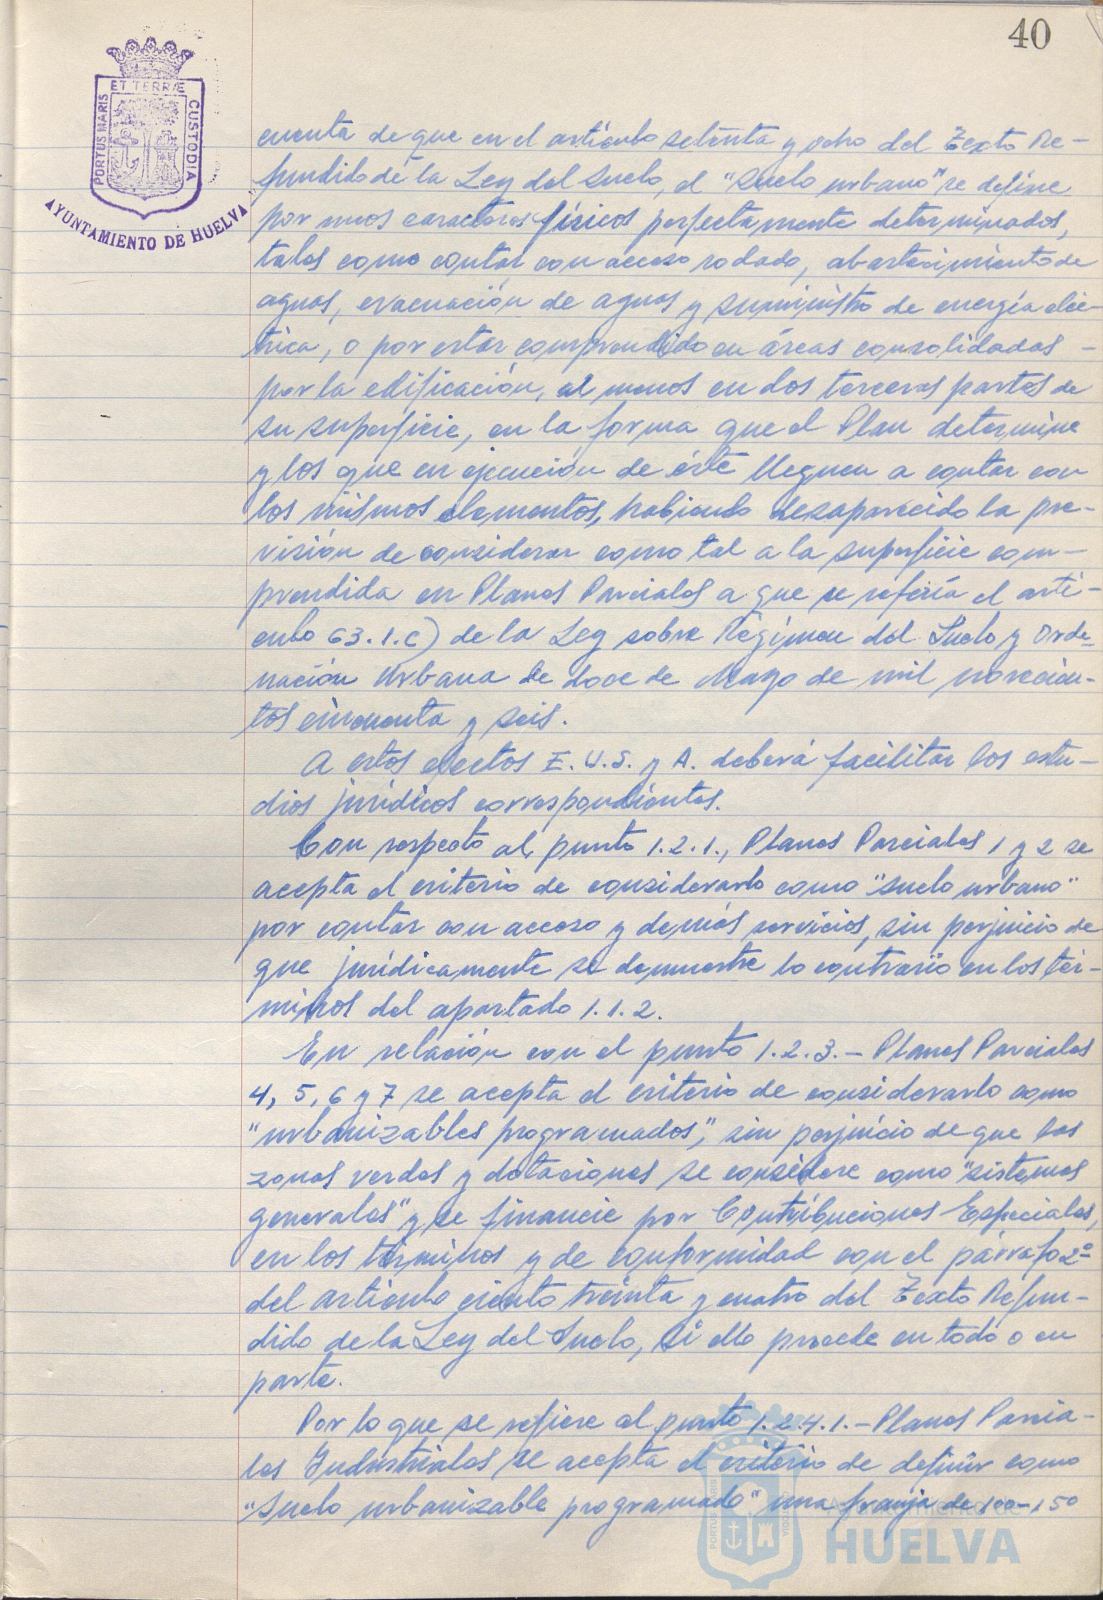 40
ET TERRÆ
PORTUS MARIS
CUSTODIA
AYUNTAMIENTO DE HUELVA
cuenta de que en el artículo setenta y ocho del Texto Re-
fundido de la Ley del Suelo, el "Suelo urbano" se define
por unos caracteres físicos perfectamente determinados,
tales como contar con acceso rodado, abastecimiento de
aguas, evacuación de aguas y suministro de energía eléc-
trica, o por estar comprendido en áreas consolidadas -
por la edificación, al menos en dos terceras partes de
su superficie, en la forma que el Plan determine
y los que en ejecución de éste lleguen a contar con
los mismos elementos, habiendo desaparecido la pre-
visión de considerar como tal a la superficie com-
prendida en Planes Parciales a que se refería el artí-
culo 63.1.c) de la Ley sobre Régimen del Suelo y Orde-
nación Urbana de doce de Mayo de mil novecien-
tos cincuenta y seis.
A estos efectos E.U.S. y A. deberá facilitar los estu-
dios jurídicos correspondientes.
Con respecto al punto 1.2.1., Planes Parciales 1 y 2 se
acepta el criterio de considerarlo como "suelo urbano"
por contar con acceso y demás servicios, sin perjuicio de
que jurídicamente se demuestre lo contrario en los tér-
minos del apartado 1.1.2.
En relación con el punto 1.2.3.- Planes Parciales
4, 5, 6 y 7 se acepta el criterio de considerarlo como
"urbanizables programados", sin perjuicio de que las
zonas verdes y dotaciones se considere como "sistemas
generales" y se financie por Contribuciones Especiales,
en los términos y de conformidad con el párrafo 2º
del artículo ciento treinta y cuatro del Texto Refun-
dido de la Ley del Suelo, si ello procede en todo o en
parte.
Por lo que se refiere al punto 1.2.4.1.- Planes Parcia-
les Industriales se acepta el criterio de definir como
"Suelo urbanizable programado" una franja de 100-150
Ayuntamiento de
HUELVA